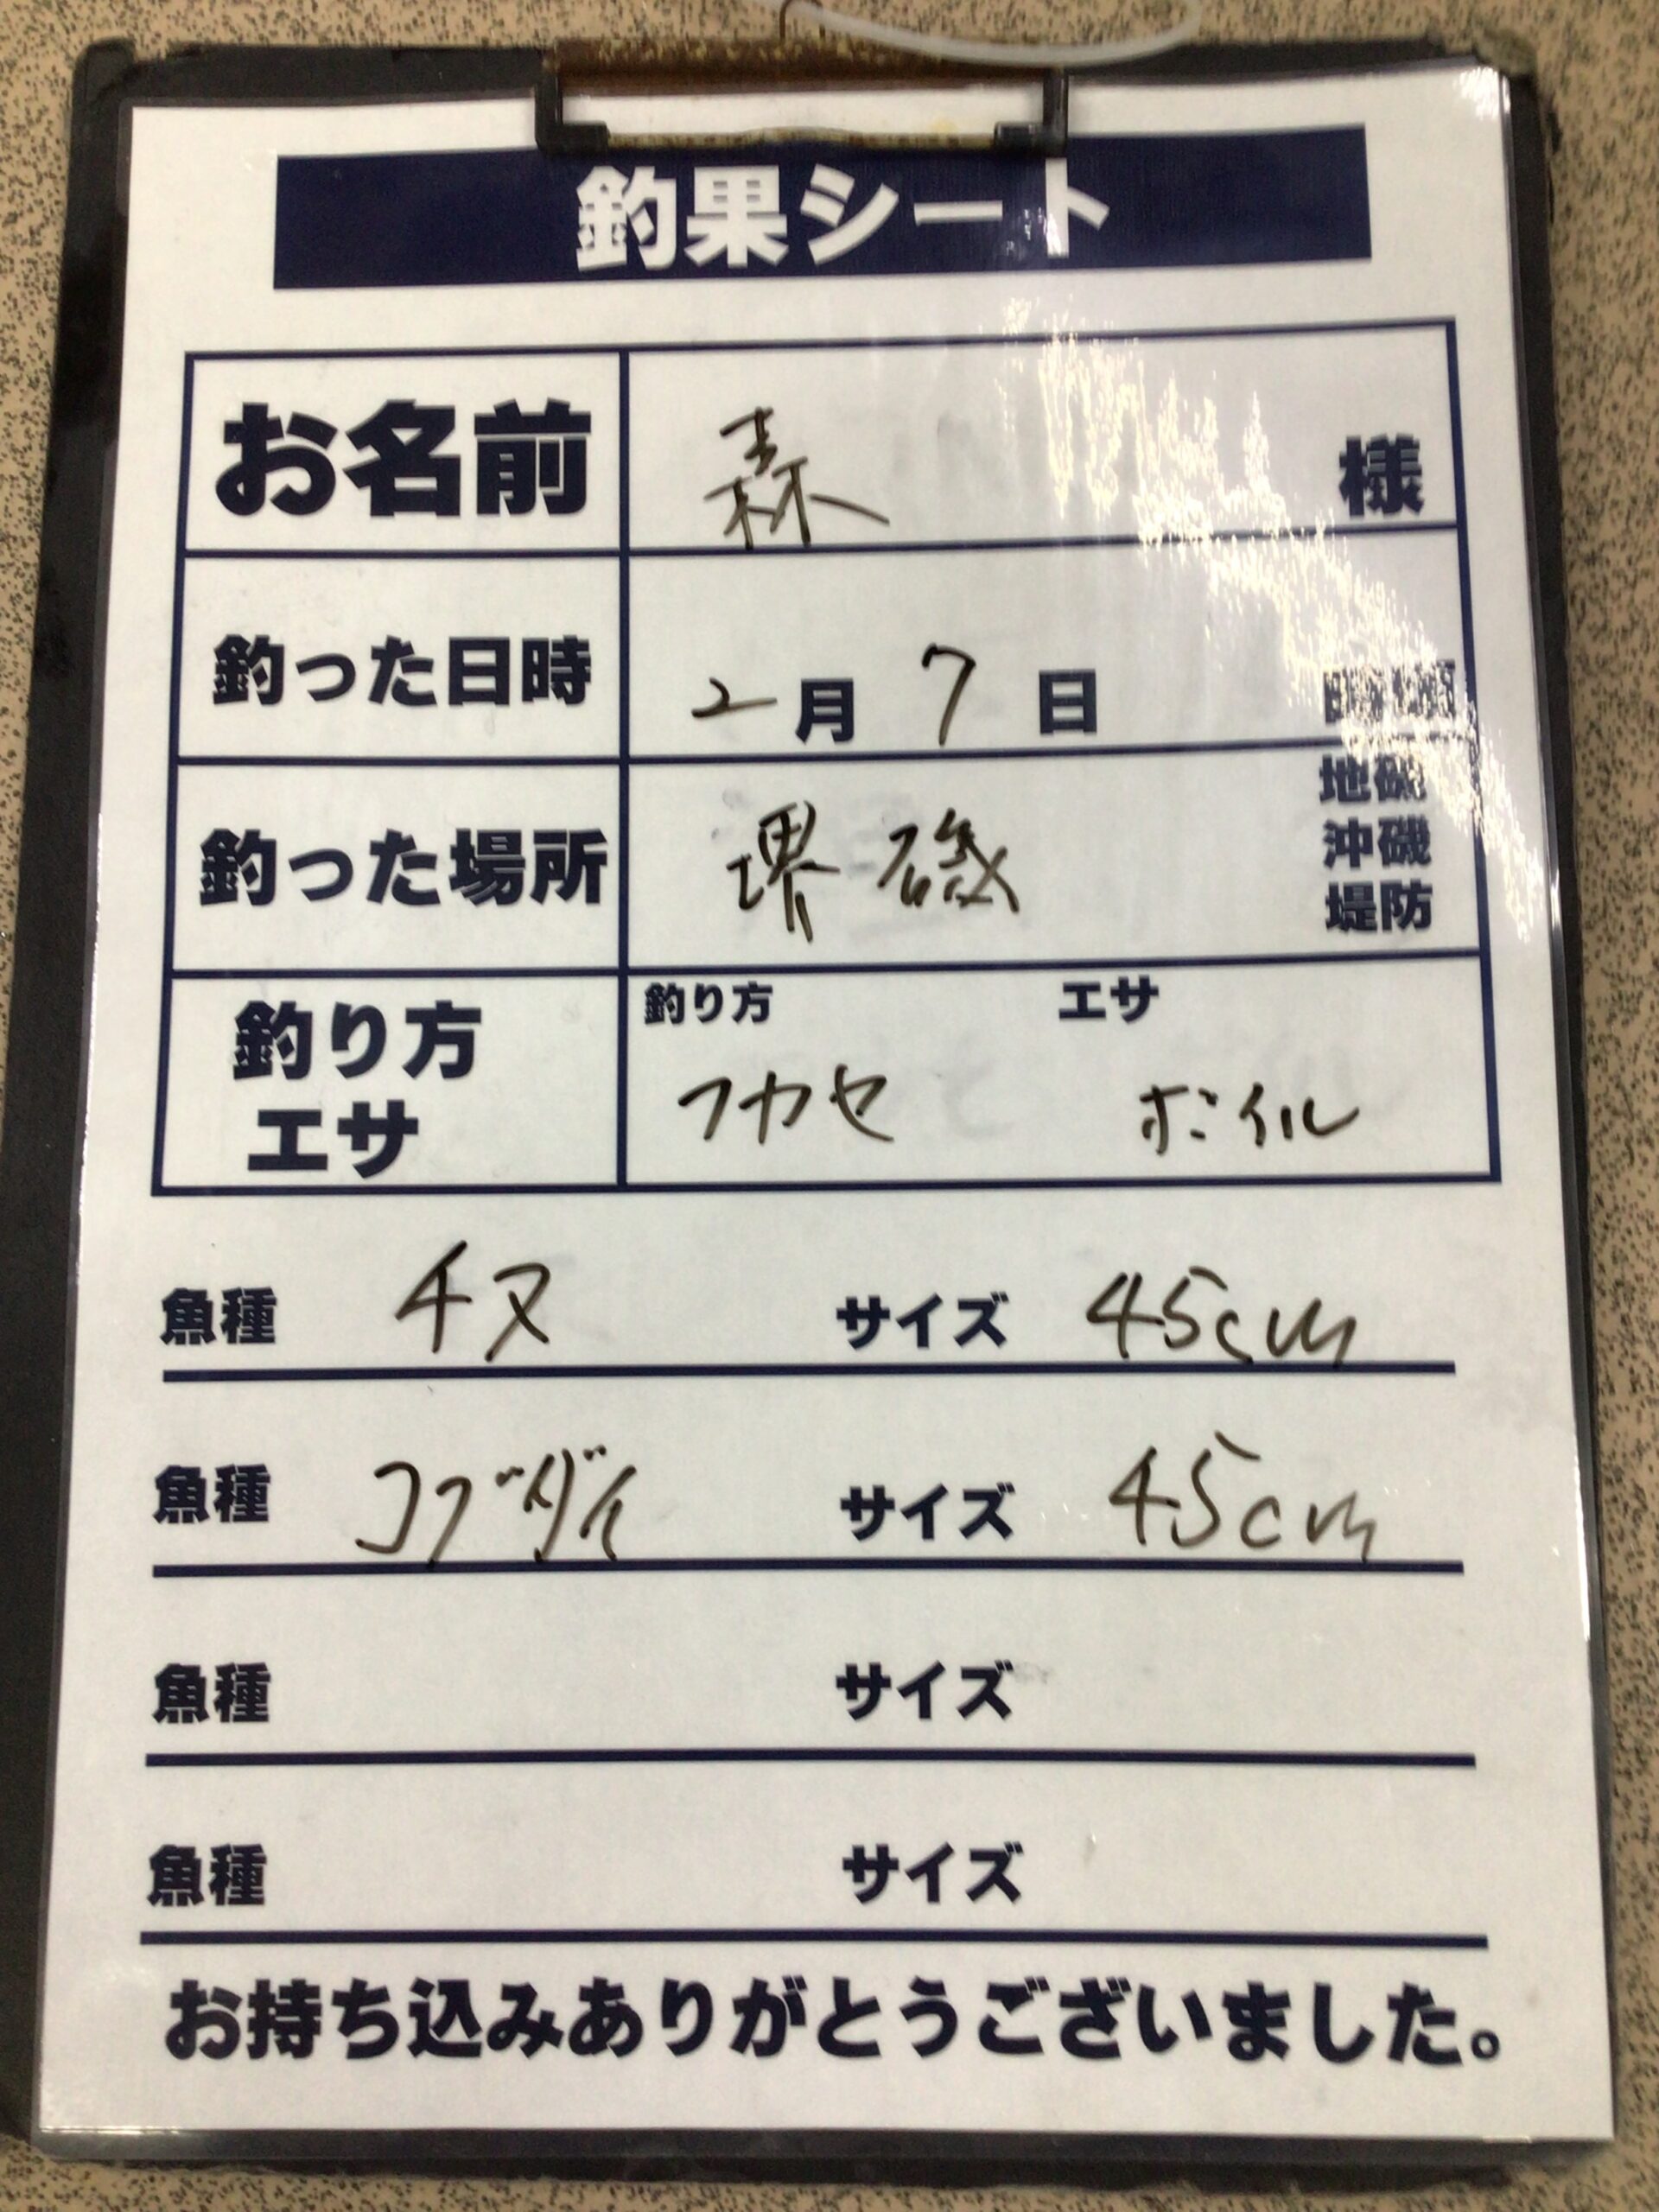 釣果シート
お名前 森 様
釣った日時 2月7日
釣った場所 堺磯 地磯
沖磯
堤防
釣り方
エサ
釣り方 エサ
フカセ ボイル
魚種 チヌ サイズ 45cm
魚種 コブダイ サイズ 45cm
魚種 サイズ
魚種 サイズ
お持ち込みありがとうございました。